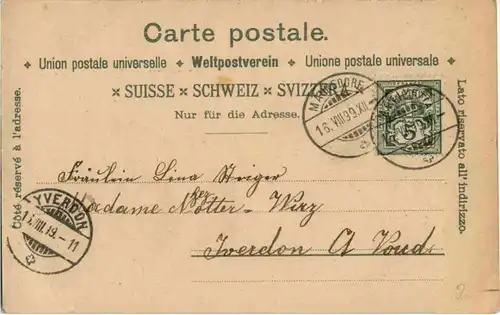 Carte postale.
Union postale universelle Weltpostverein Unione postale universale
SUISSE SCHWEIZ SVIZZERA
Nur für die Adresse.
Côté réservé à l'adresse.
Lato riservato all'indirizzo.
16.VIII.99.XII
5
Fräulein Lina Steiger
Madame Wirz
Yverdon Ct Vaud
YVERDON